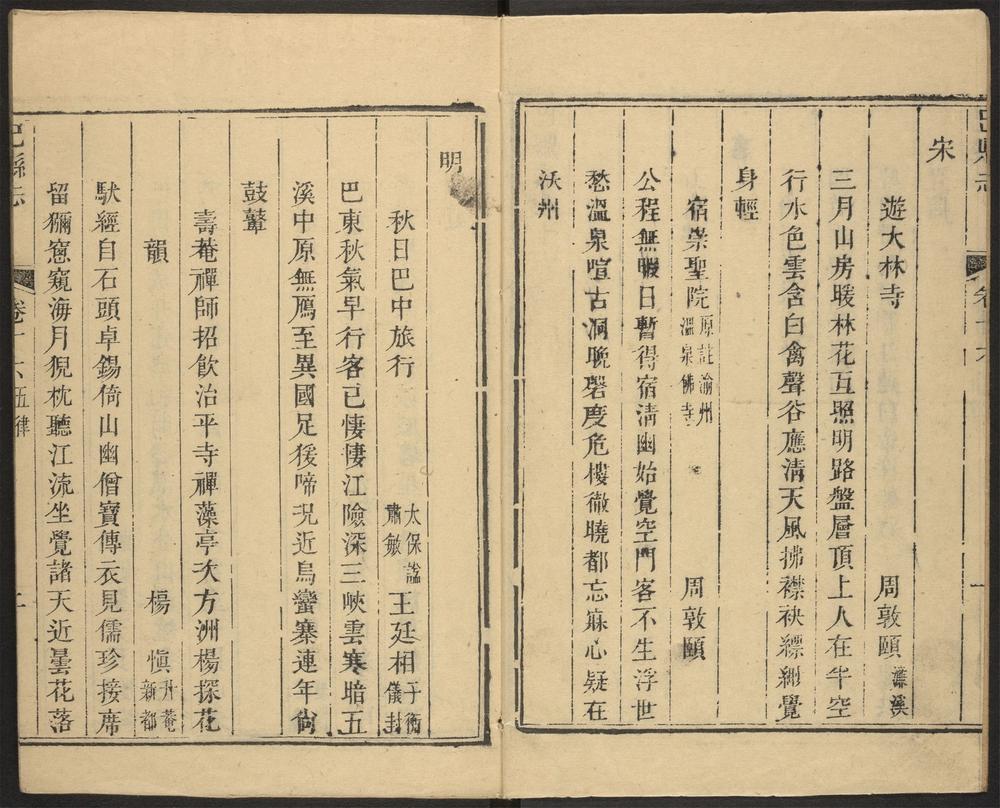 巴縣志
卷十六
宋
遊大林寺
周敦頤
濂溪
三月山房暖林花互照明路盤層頂上人在半空
行水色雲含白禽聲谷應淸天風拂襟袂縹緲覺
身輕
宿崇聖院
原註渝州
溫泉佛寺
周敦頤
公程無暇日暫得宿淸幽始覺空門客不生浮世
愁溫泉喧古洞晚磬度危樓徹曉都忘寐心疑在
沃州
明
秋日巴中旅行
太保諡
肅敏
王廷相
子衡
儀封
巴東秋氣早行客已悽悽江險深三峽雲寒暗五
溪中原無鴈至異國足猨啼况近烏蠻寨連年尙
鼓鼙
壽菴禪師招飮治平寺禪藻亭次方洲楊探花
韻
楊愼
升菴
新都
馱經自石頭卓錫倚山幽僧寶傳衣見儒珍接席
留獼窻窺海月猊枕聽江流坐覺諸天近曇花落
巴縣志
卷十六
五律